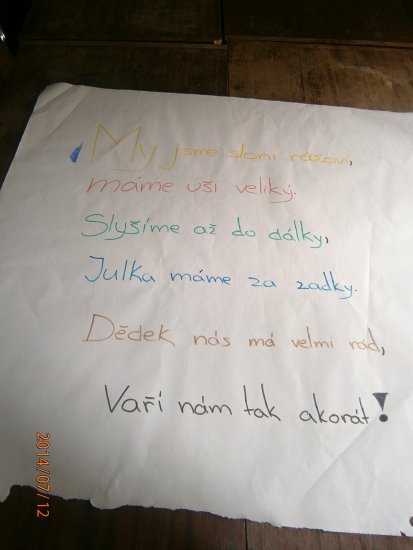 My jsme sloni názoví,
máme uši veliký.
Slyšíme až do dálky,
Julka máme za zadky.
Dědek nás má velmi rád,
Vaří nám tak akorát!
2014/07/12